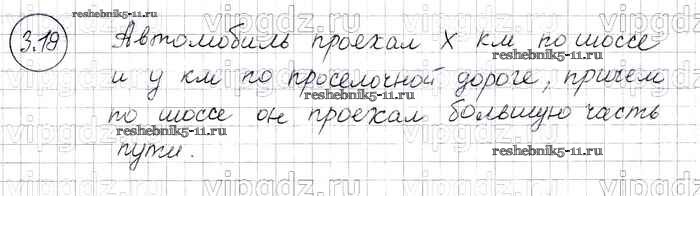 3.19 Автомобиль проехал x км по шоссе
и y км по проселочной дороге, причем
по шоссе он проехал большую часть
пути.
reshebnik5-11.ru
reshebnik5-11.ru
reshebnik5-11.ru
reshebnik5-11.ru
reshebnik5-11.ru
vipgdz.ru
vipgdz.ru
vipgdz.ru
vipgdz.ru